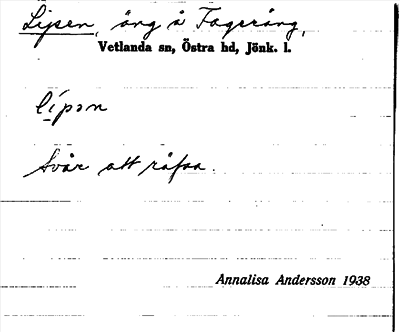 Lipsen, äng å Fageräng,
Vetlanda sn, Östra hd, Jönk. l.
lípsn
Svår att räfsa.
Annalisa Andersson 1938